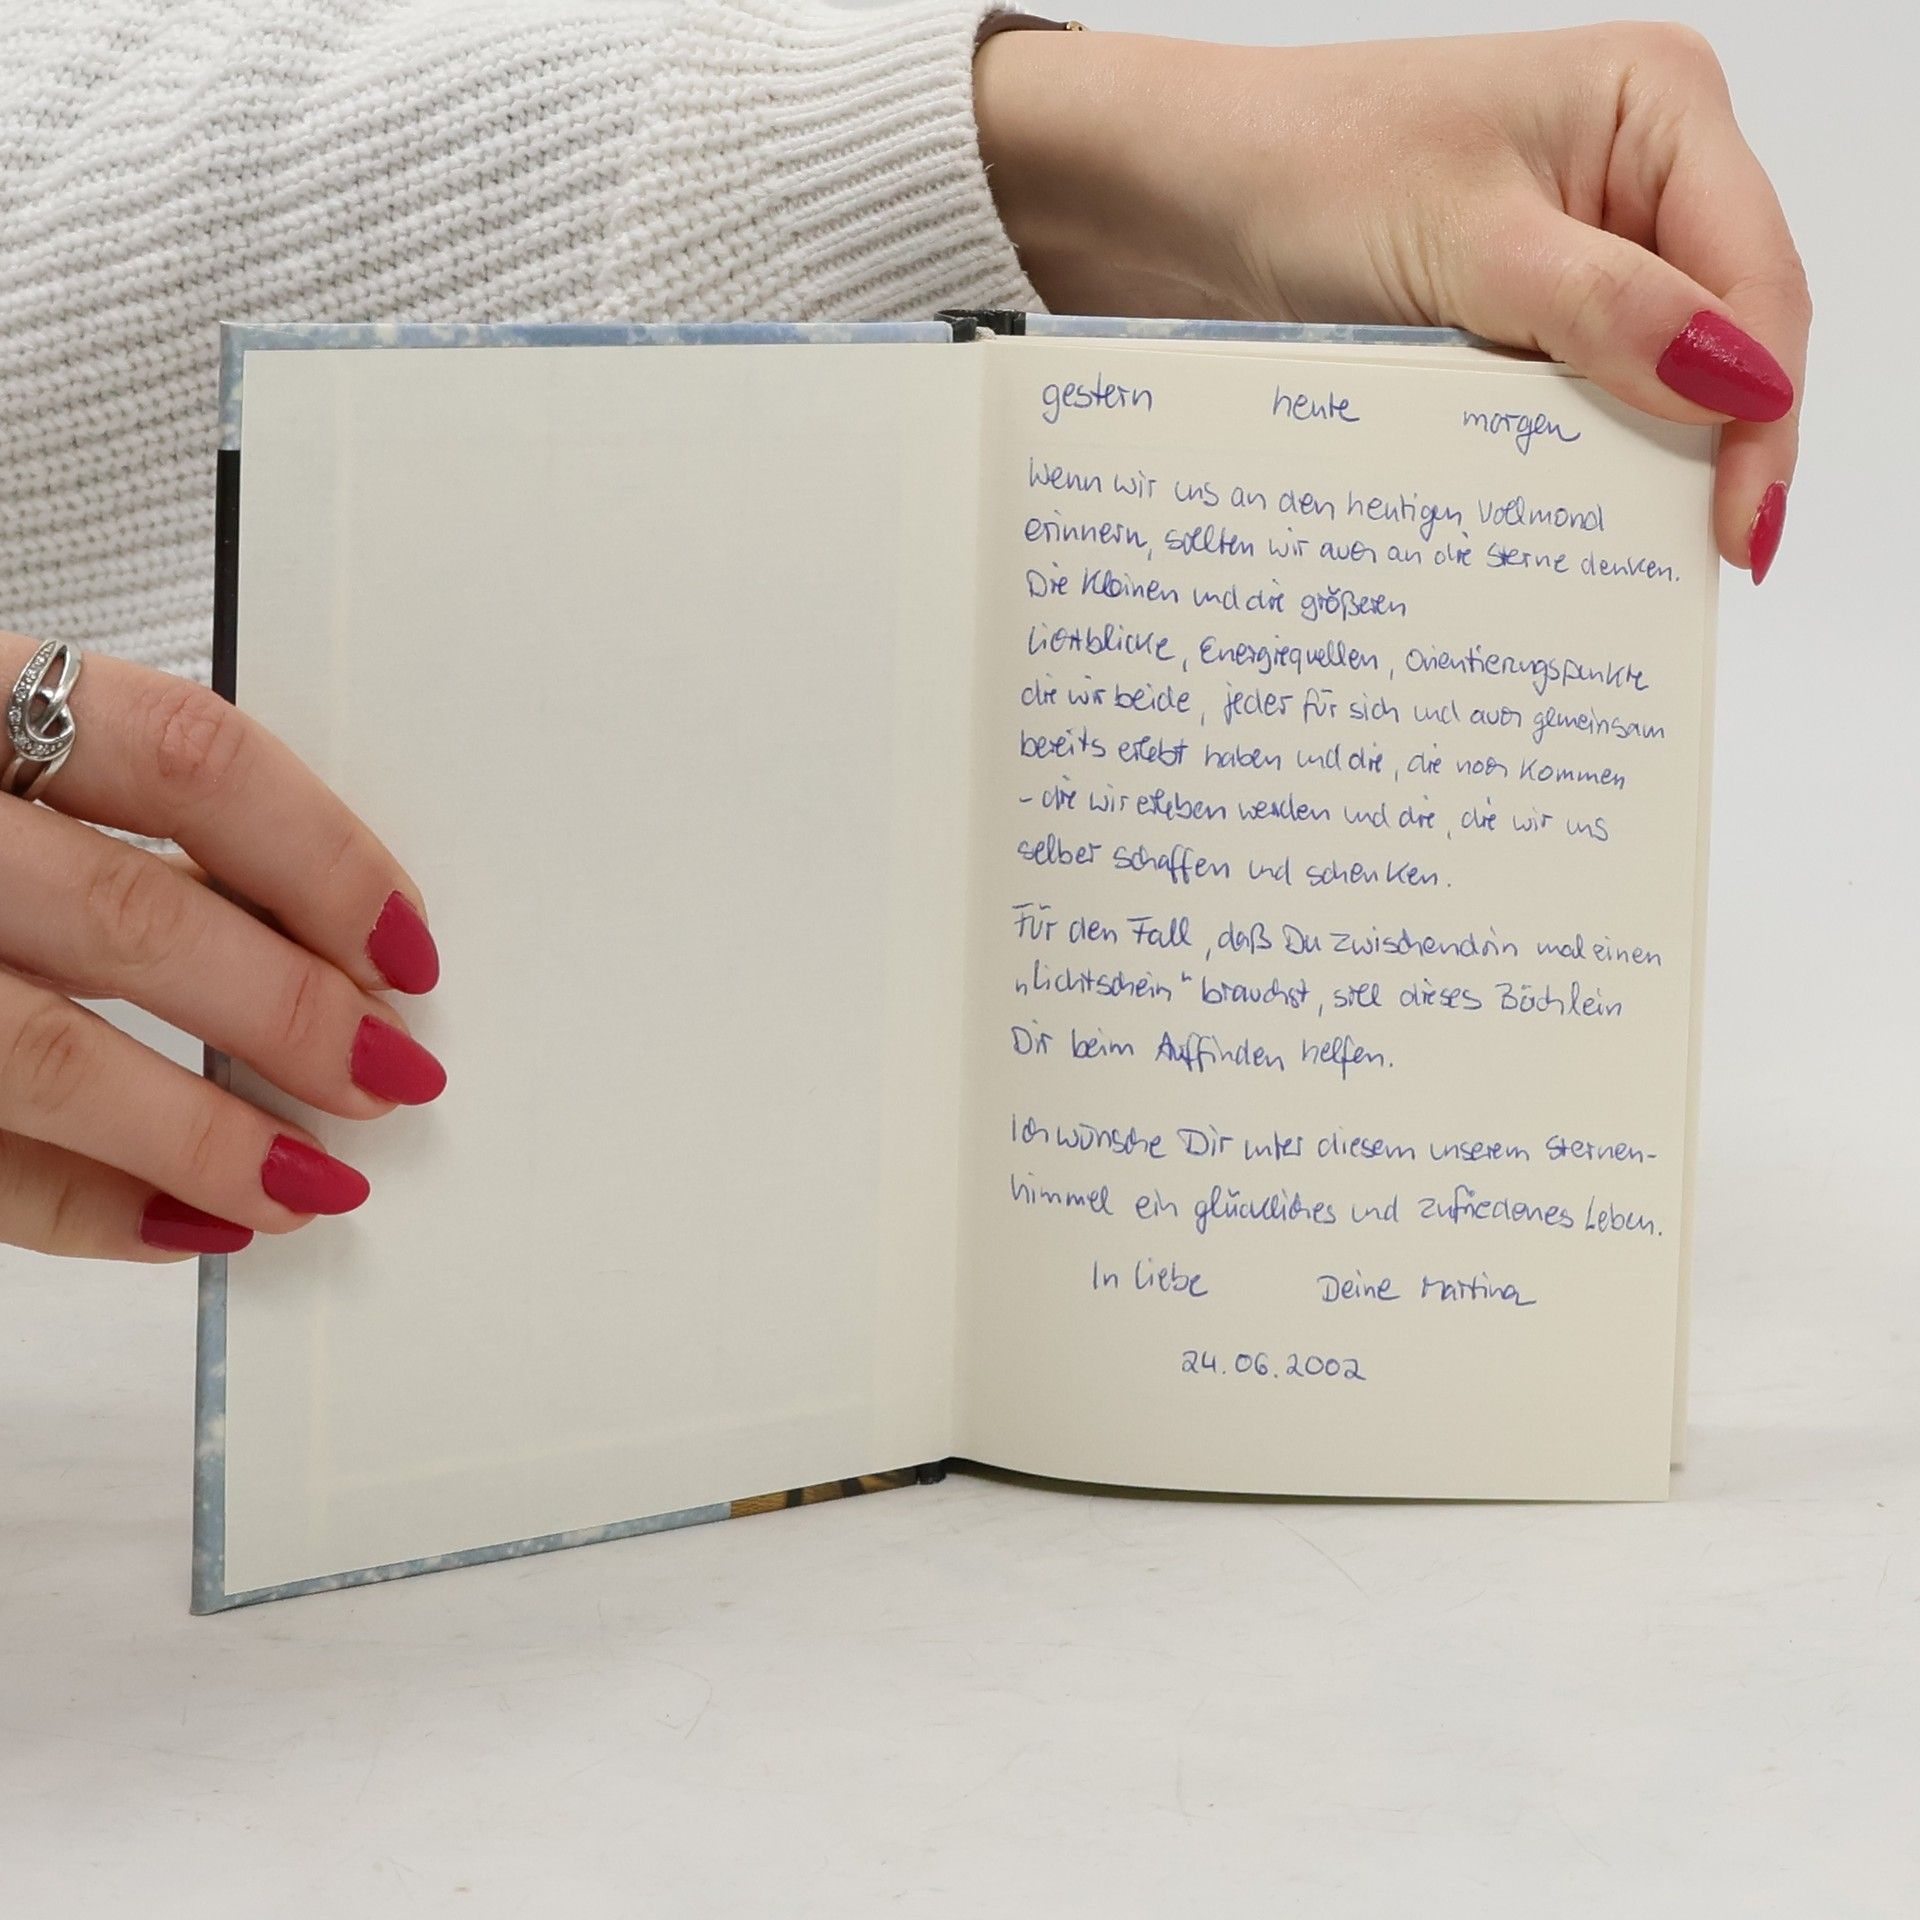 gestern heute morgen
Wenn wir uns an den heutigen Vollmond
erinnern, sollten wir auch an die Sterne denken.
Die Kleinen und die größeren
Lichtblicke, Energiequellen, Orientierungspunkte
die wir beide, jeder für sich und auch gemeinsam
bereits erlebt haben und die, die noch kommen
- die wir erleben werden und die, die wir uns
selber schaffen und schenken.
Für den Fall, daß Du zwischendrin mal einen
„Lichtschein" brauchst, soll dieses Büchlein
Dir beim Auffinden helfen.
Ich wünsche Dir unter diesem unserem Sternen-
himmel ein glückliches und zufriedenes Leben.
In Liebe Deine Martina
24.06.2002